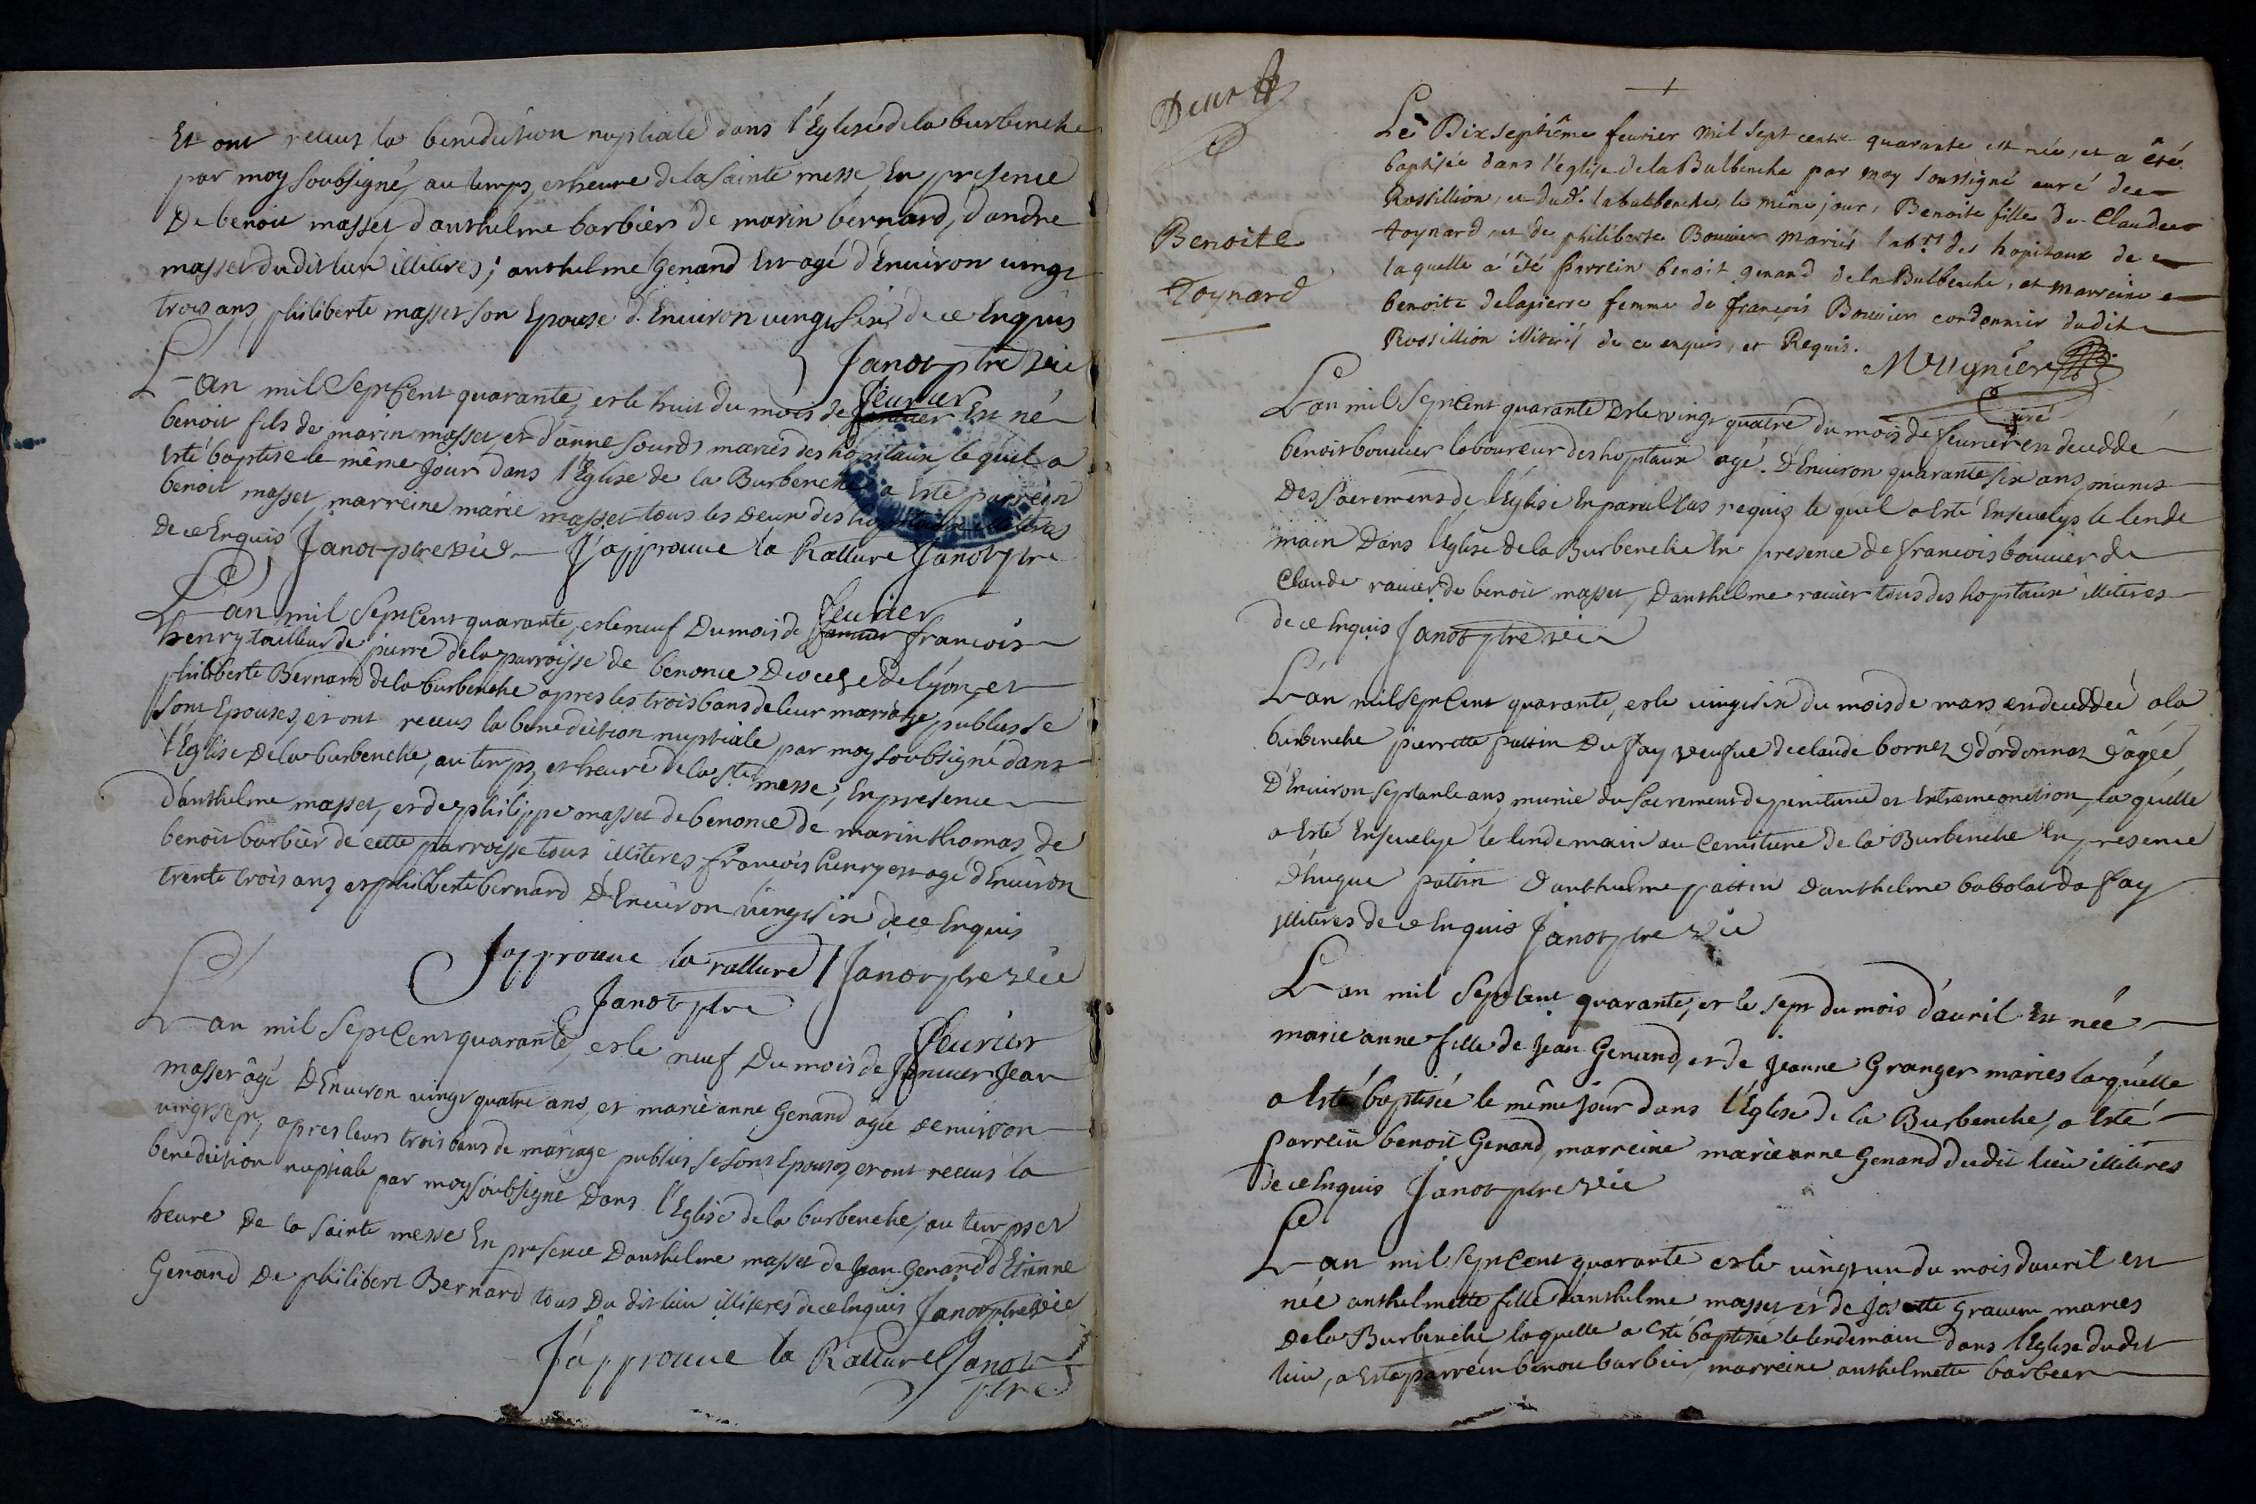 Et ont recus la benediction nuptiale dans l'Eglise de la burbenche
par moy soubsigné, au temps, et heure de la sainte messe, En presence
De benoit masset, d'anthelme barbier de marin bernard, d'andre
masset du dit lieu illiteres; anthelme Genand Est agé d'Environ vingt
trois ans, philiberte masset son Epouse d'Environ vingt six, de ce Enquis
Janot ptre vic
L'an mil sept Cent quarante, et le huit du mois de janvier fevrier Est né
benoit fils de marin masset et d'anne sourd mariés des hopitaux, le quel a
Esté baptisé le même jour dans l'Eglise de la Burbenche a Esté parrein
benoit masset, marreine marie masset tous les deux des hopitaux illiteres
de ce Enquis Janot ptre vic J'approuve laRatture Janot ptre
L'an mil sept Cent quarante, et le neuf Du mois de janvier fevrier francois
henry tailleur de pierre de la parroisse de benonce Diocese de lyon, et
philiberte Bernard de la burbenche apres les trois bans de leur mariage publies se
sont Epouses, et ont recus la benediction nuptiale par moy soubsigné dans
l'Eglise De la burbenche, au temps, et heure de la ste messe, En presence
d'anthelme masset, et de philippe masset de benonce de marin thomas, de
benoit barbier de cette parroisse tous illiteres francois henry est agé d'Environ
trente trois ans, et philiberte bernard D'Environ vingt six de ce Enquis
J'approuve la ratture Janot ptre vic
Janot ptre
L'an mil sept Cent quarante, et le neuf Du mois de janvier fevrier Jean
masset âgé D'Environ vingt quatre ans, et marie anne Genand agée d'environ
vingt sept, apres leurs trois bans de mariage publies se sont Epouses, et ont recus la
benediction nuptiale par moy soubsigné Dans l'Eglise de la burbenche, au temps et
heure De la sainte messe En presence D'anthelme masset de Jean Genand d'Etienne
Genand De philibert Bernard tous Du dit lieu illiteres de ce Enquis Janot ptre vic
J'approuve la Ratture Janot
ptre
Deux
Benoite
Toynard
Le Dix septiême fevrier mil sept cent quarante est née, et a êté
baptisée dans l'église de la Bulbenche par moy soussigné curé de
Rossillion, et dud. la bulbenche, le même jour, Benoite fille de Claude
toynard, et de philiberte Bouvier mariés labrs des hopitaux de
laquelle a été parrein benoit genand de la Bulbenche, et marreine
benoite delapierre femme de françois Bouvier cordonnier dudit
Rossillion illiterés de ce enquis, et Requis.
Mugnier
Curé
L'an mil sept Cent quarante Et le vingt quatre du mois de fevrier en decedde
benoit bouvier laboureur des hopitaux agé D'Environ quarante six ans, munis
Des sacremens de l'Eglise En pareil cas requis le quel a Esté Ensevelys le lende
main Dans l'Eglise de la Burbenche En presence de francois bouvier de
Claude ravier, de benoit masset, D'anthelme ravier tous des hopitaux illiteres
de ce Enquis Janot ptre vic
L'an mil sept Cent quarante, et le vingt six du mois de mars en deceddeé a la
burbenche pierrette pattin Du fay veufve de claude bornet d'ordonnat agée
D'Environ septante ans, munie du sacrement de penitence et Extreme onction, la quelle
a Esté Ensevelye le lendemain au Cemitiere De la Burbenche En presence
D'hugue pattin D'anthelme pattin D'anthelme babolat du fay
illiteres de ce Enquis Janot ptre vic
L'an mil sept Cent quarante, et le sept du mois d'avril Est neé
marie anne fille de Jean Genand, et de Jeanne Granger maries la quélle
a Esté baptisée le même jour dans l'Eglise de la Burbenche, a Esté
parrein benoit Genand, marreine marie anne Genand du dit lieu illiteres
de ce Enquis Janot ptre vic
L'an mil sept Cent quarante et le vingt un du mois d'avril est
née anthelmette fille d'anthelme masset et de Josette maries
De la Burbenche, la quelle a esté baptisée le lendemain dans l'Eglise du dit
lieu, a Esté parrein benoit barbier, marreine anthelmette barbier